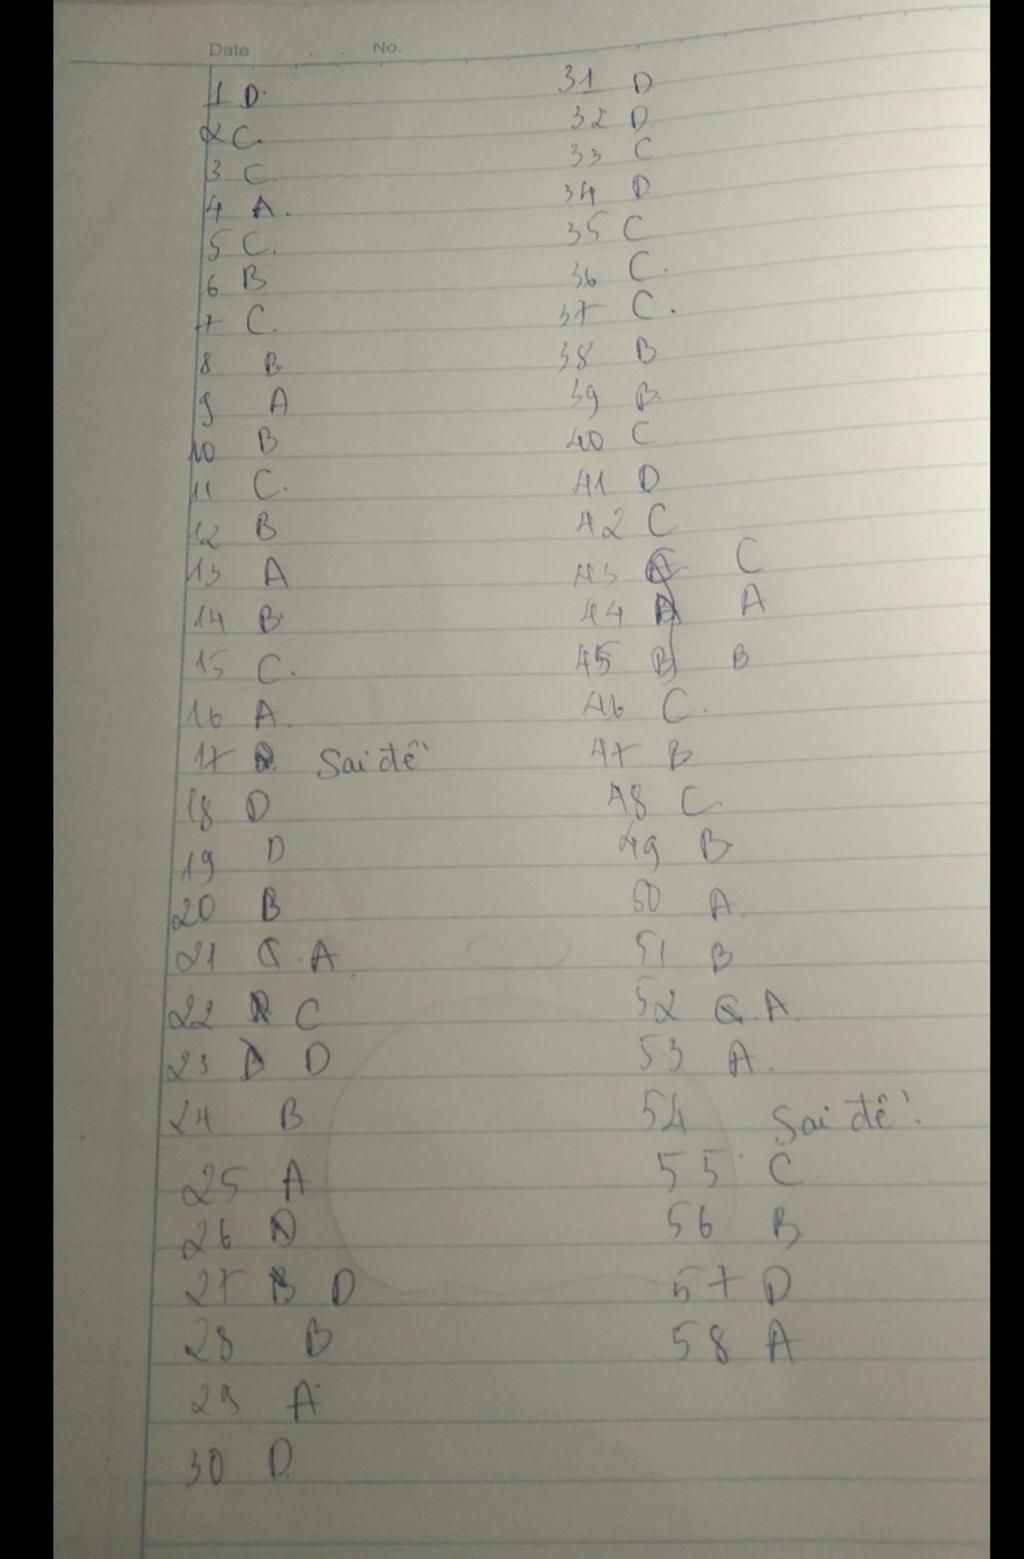 Date No.
1 D.
2 C.
3 C.
4 A.
5 C.
6 B
7 C.
8 B
9 A
10 B
11 C.
12 B
13 A
14 B.
15 C.
16 A.
17 Sai đề
18 D
19 D
20 B
21 A
22 C
23 D
24 B
25 A
26 D
27 D
28 B
29 A
30 D.
31 D
32 D
33 C
34 D
35 C
36 C.
37 C.
38 B
39 B.
40 C
41 D
42 C
43 C
44 A
45 B B
46 C.
47 B
48 C
49 B.
50 A.
51 B
52 A.
53 A.
54 Sai đề.
55 C
56 B
57 D
58 A